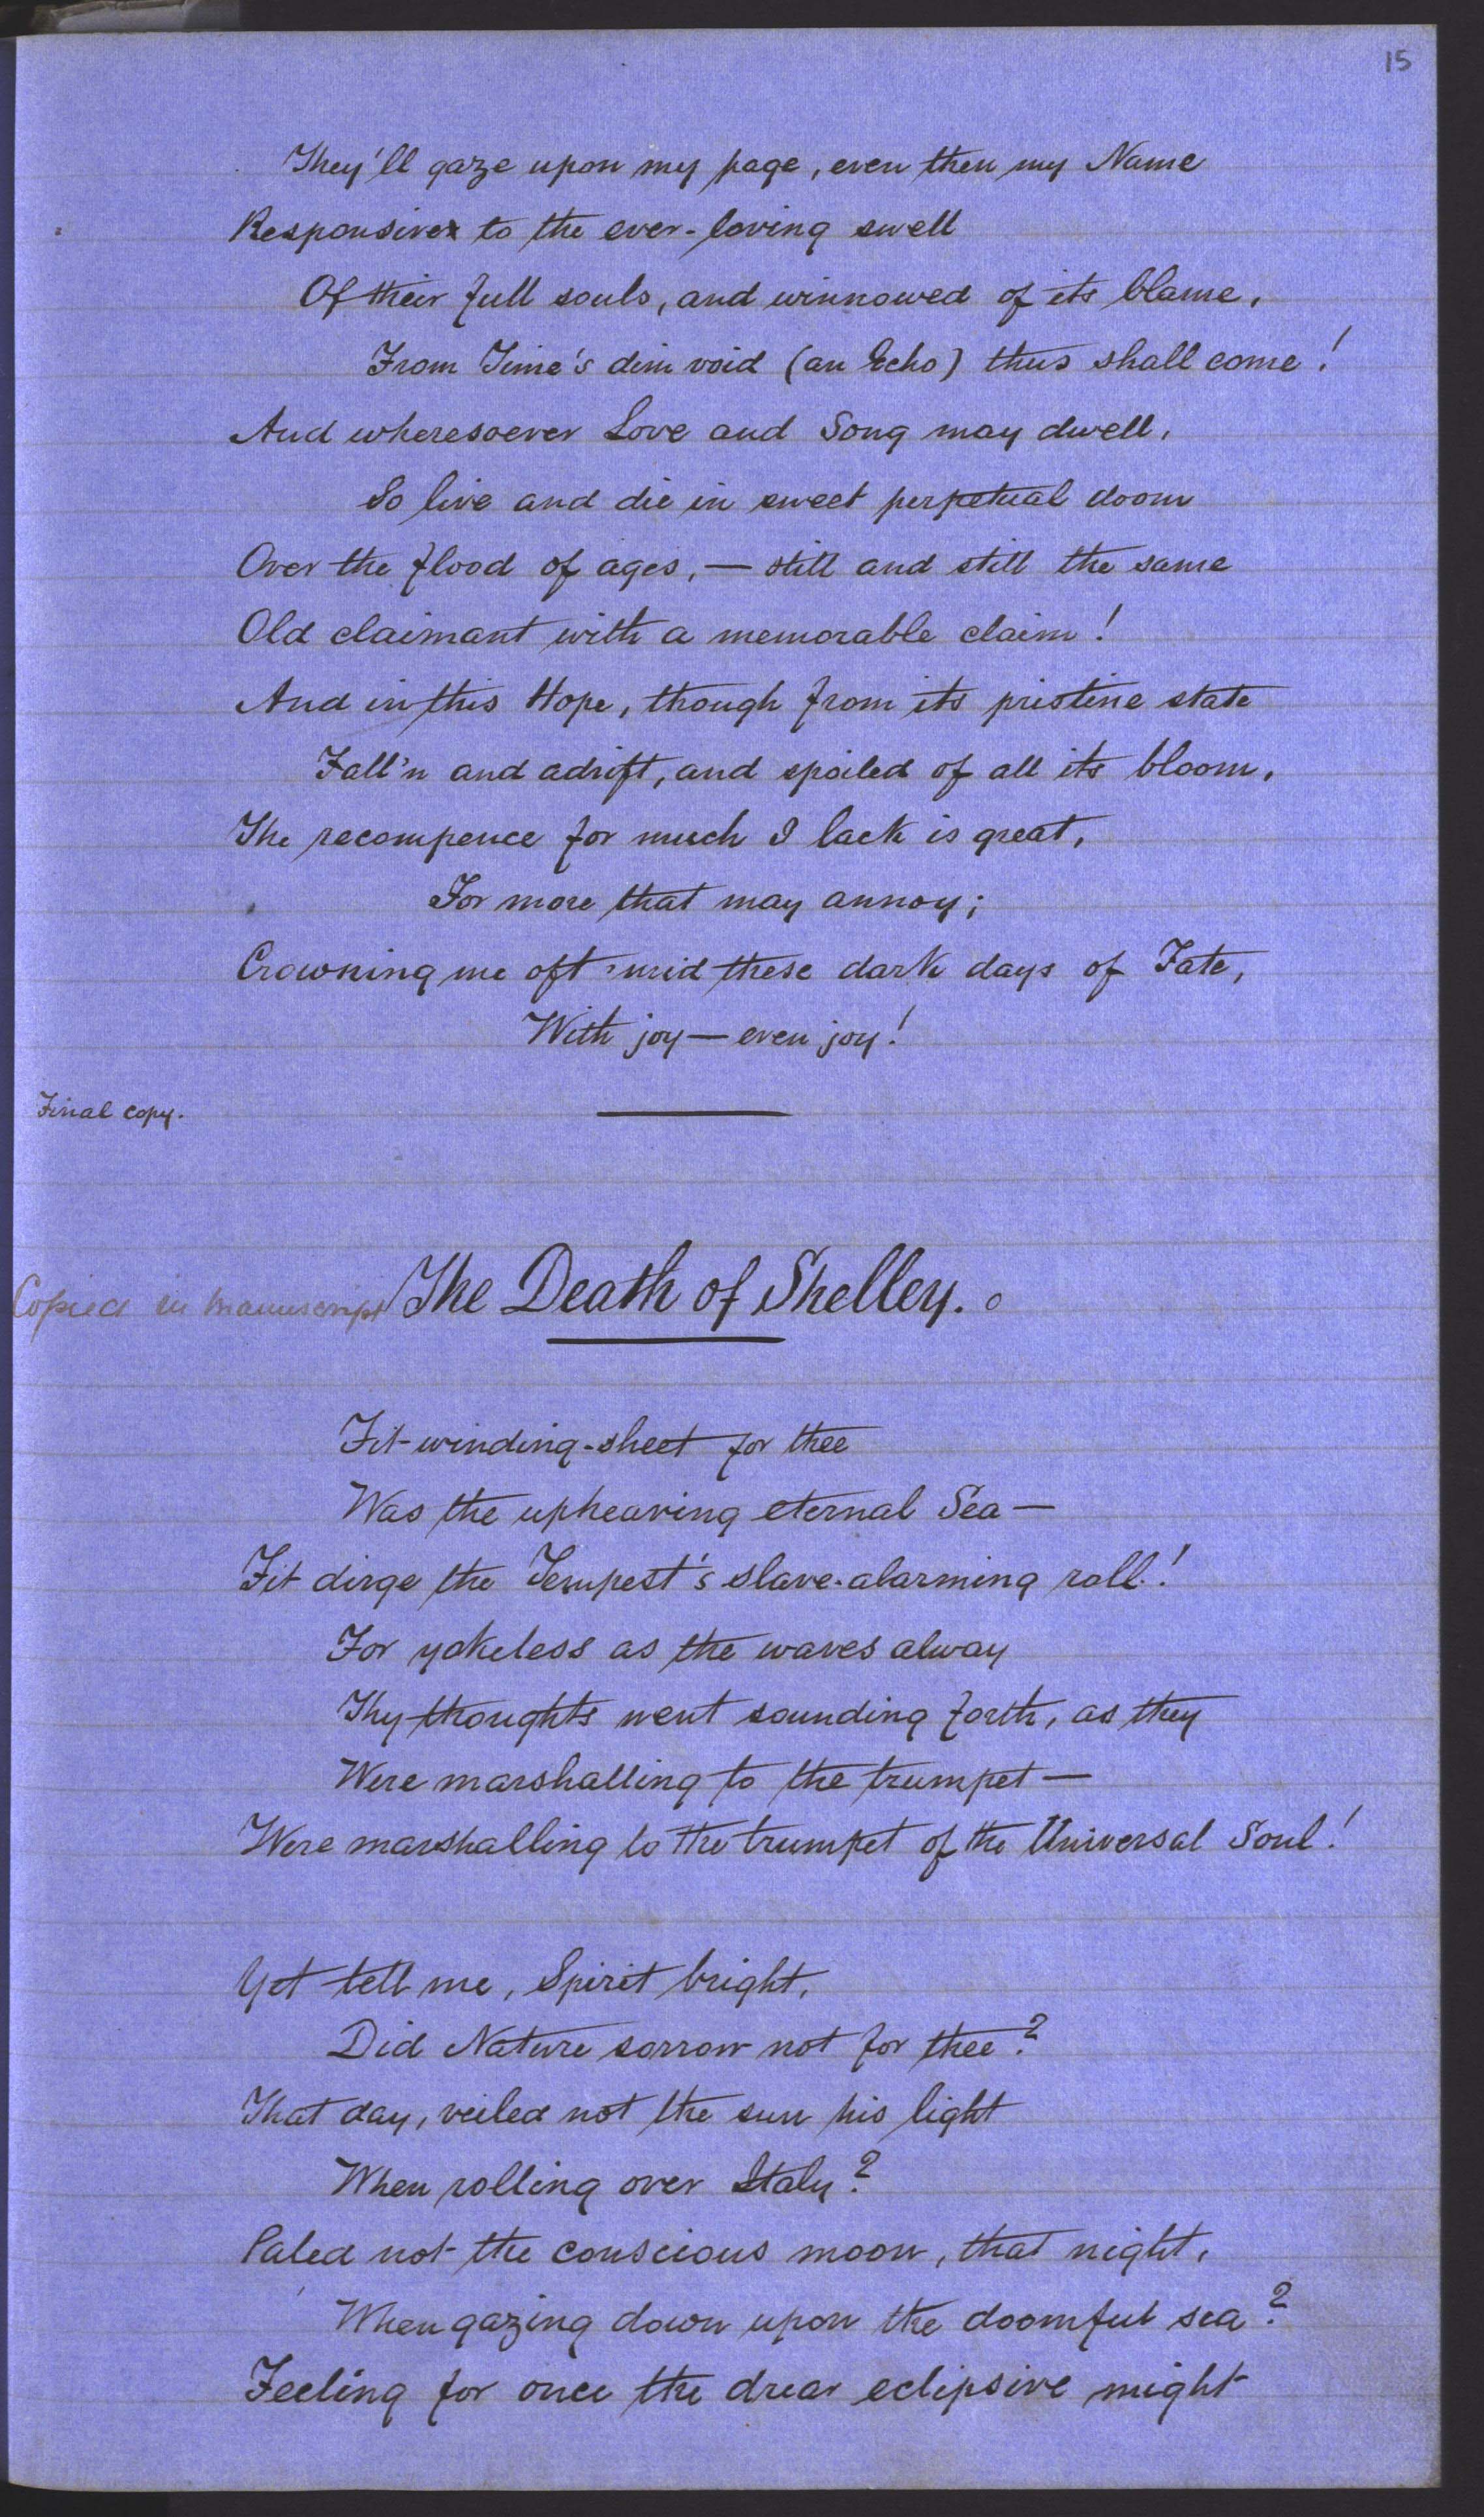 15
They'll gaze upon my page, even then my Name
Responsive to the ever-loving swell
Of their full souls, and winnowed of its blame,
From Time's dim void (an Echo) thus shall come!
And wheresoever Love and Song may dwell,
So live and die in sweet perpetual doom
Over the flood of ages, — still and still the same
Old claimant with a memorable claim!
And in this Hope, though from its pristine state
Fall'n and adrift, and spoiled of all its bloom,
The recompence for much I lack is great,
For more that may annoy;
Crowning me oft 'mid these dark days of Fate,
With joy — even joy!
Final copy.
Copied in manuscript The Death of Shelley.
Fit winding-sheet for thee
Was the upheaving eternal Sea —
Fit dirge the Tempest's slave-alarming roll!
For yokeless as the waves alway
Thy thoughts went sounding forth, as they
Were marshalling to the trumpet —
Were marshalling to the trumpet of the Universal Soul!
Yet tell me, Spirit bright,
Did Nature sorrow not for thee?
That day, veiled not the sun his light
When rolling over Italy?
Paled not the conscious moon, that night,
When gazing down upon the doomful sea?
Feeling for once the drear eclipsive might